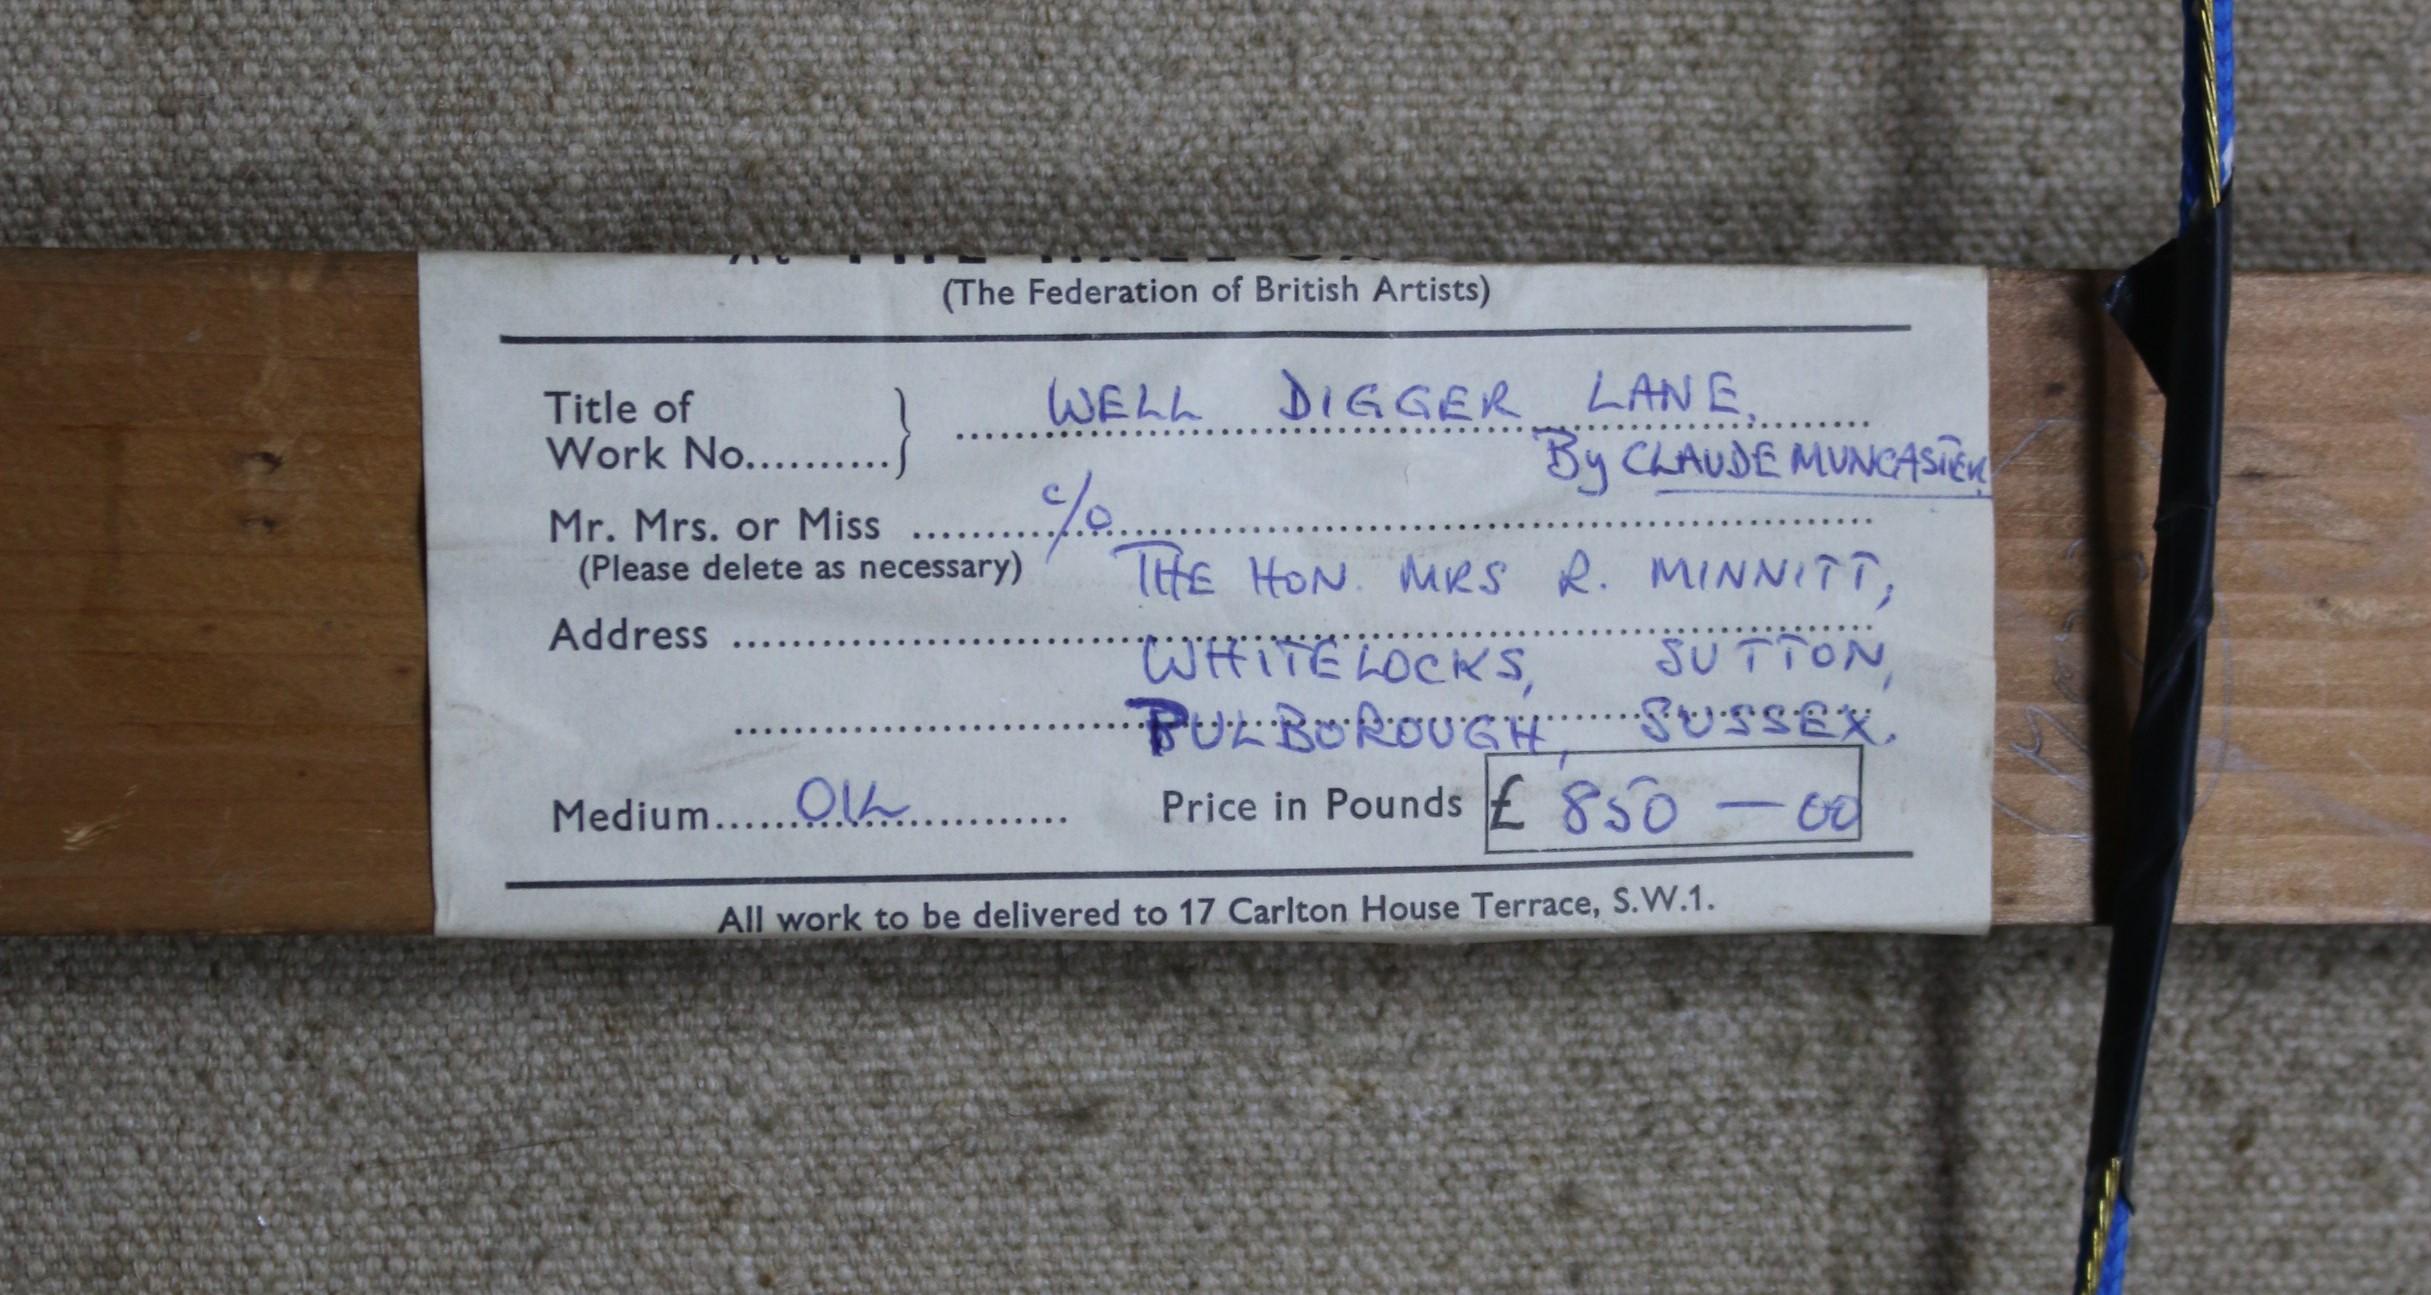 At THE MALL GA
(The Federation of British Artists)
Title of
Work No........... } WELL DIGGER LANE.
By CLAUDE MUNCASTER
Mr. Mrs. or Miss c/o
(Please delete as necessary) THE HON. MRS R. MINNITT,
Address
WHITELOCKS, SUTTON,
PULBOROUGH, SUSSEX.
Medium OIL Price in Pounds £ 850 — 00
All work to be delivered to 17 Carlton House Terrace, S.W.1.